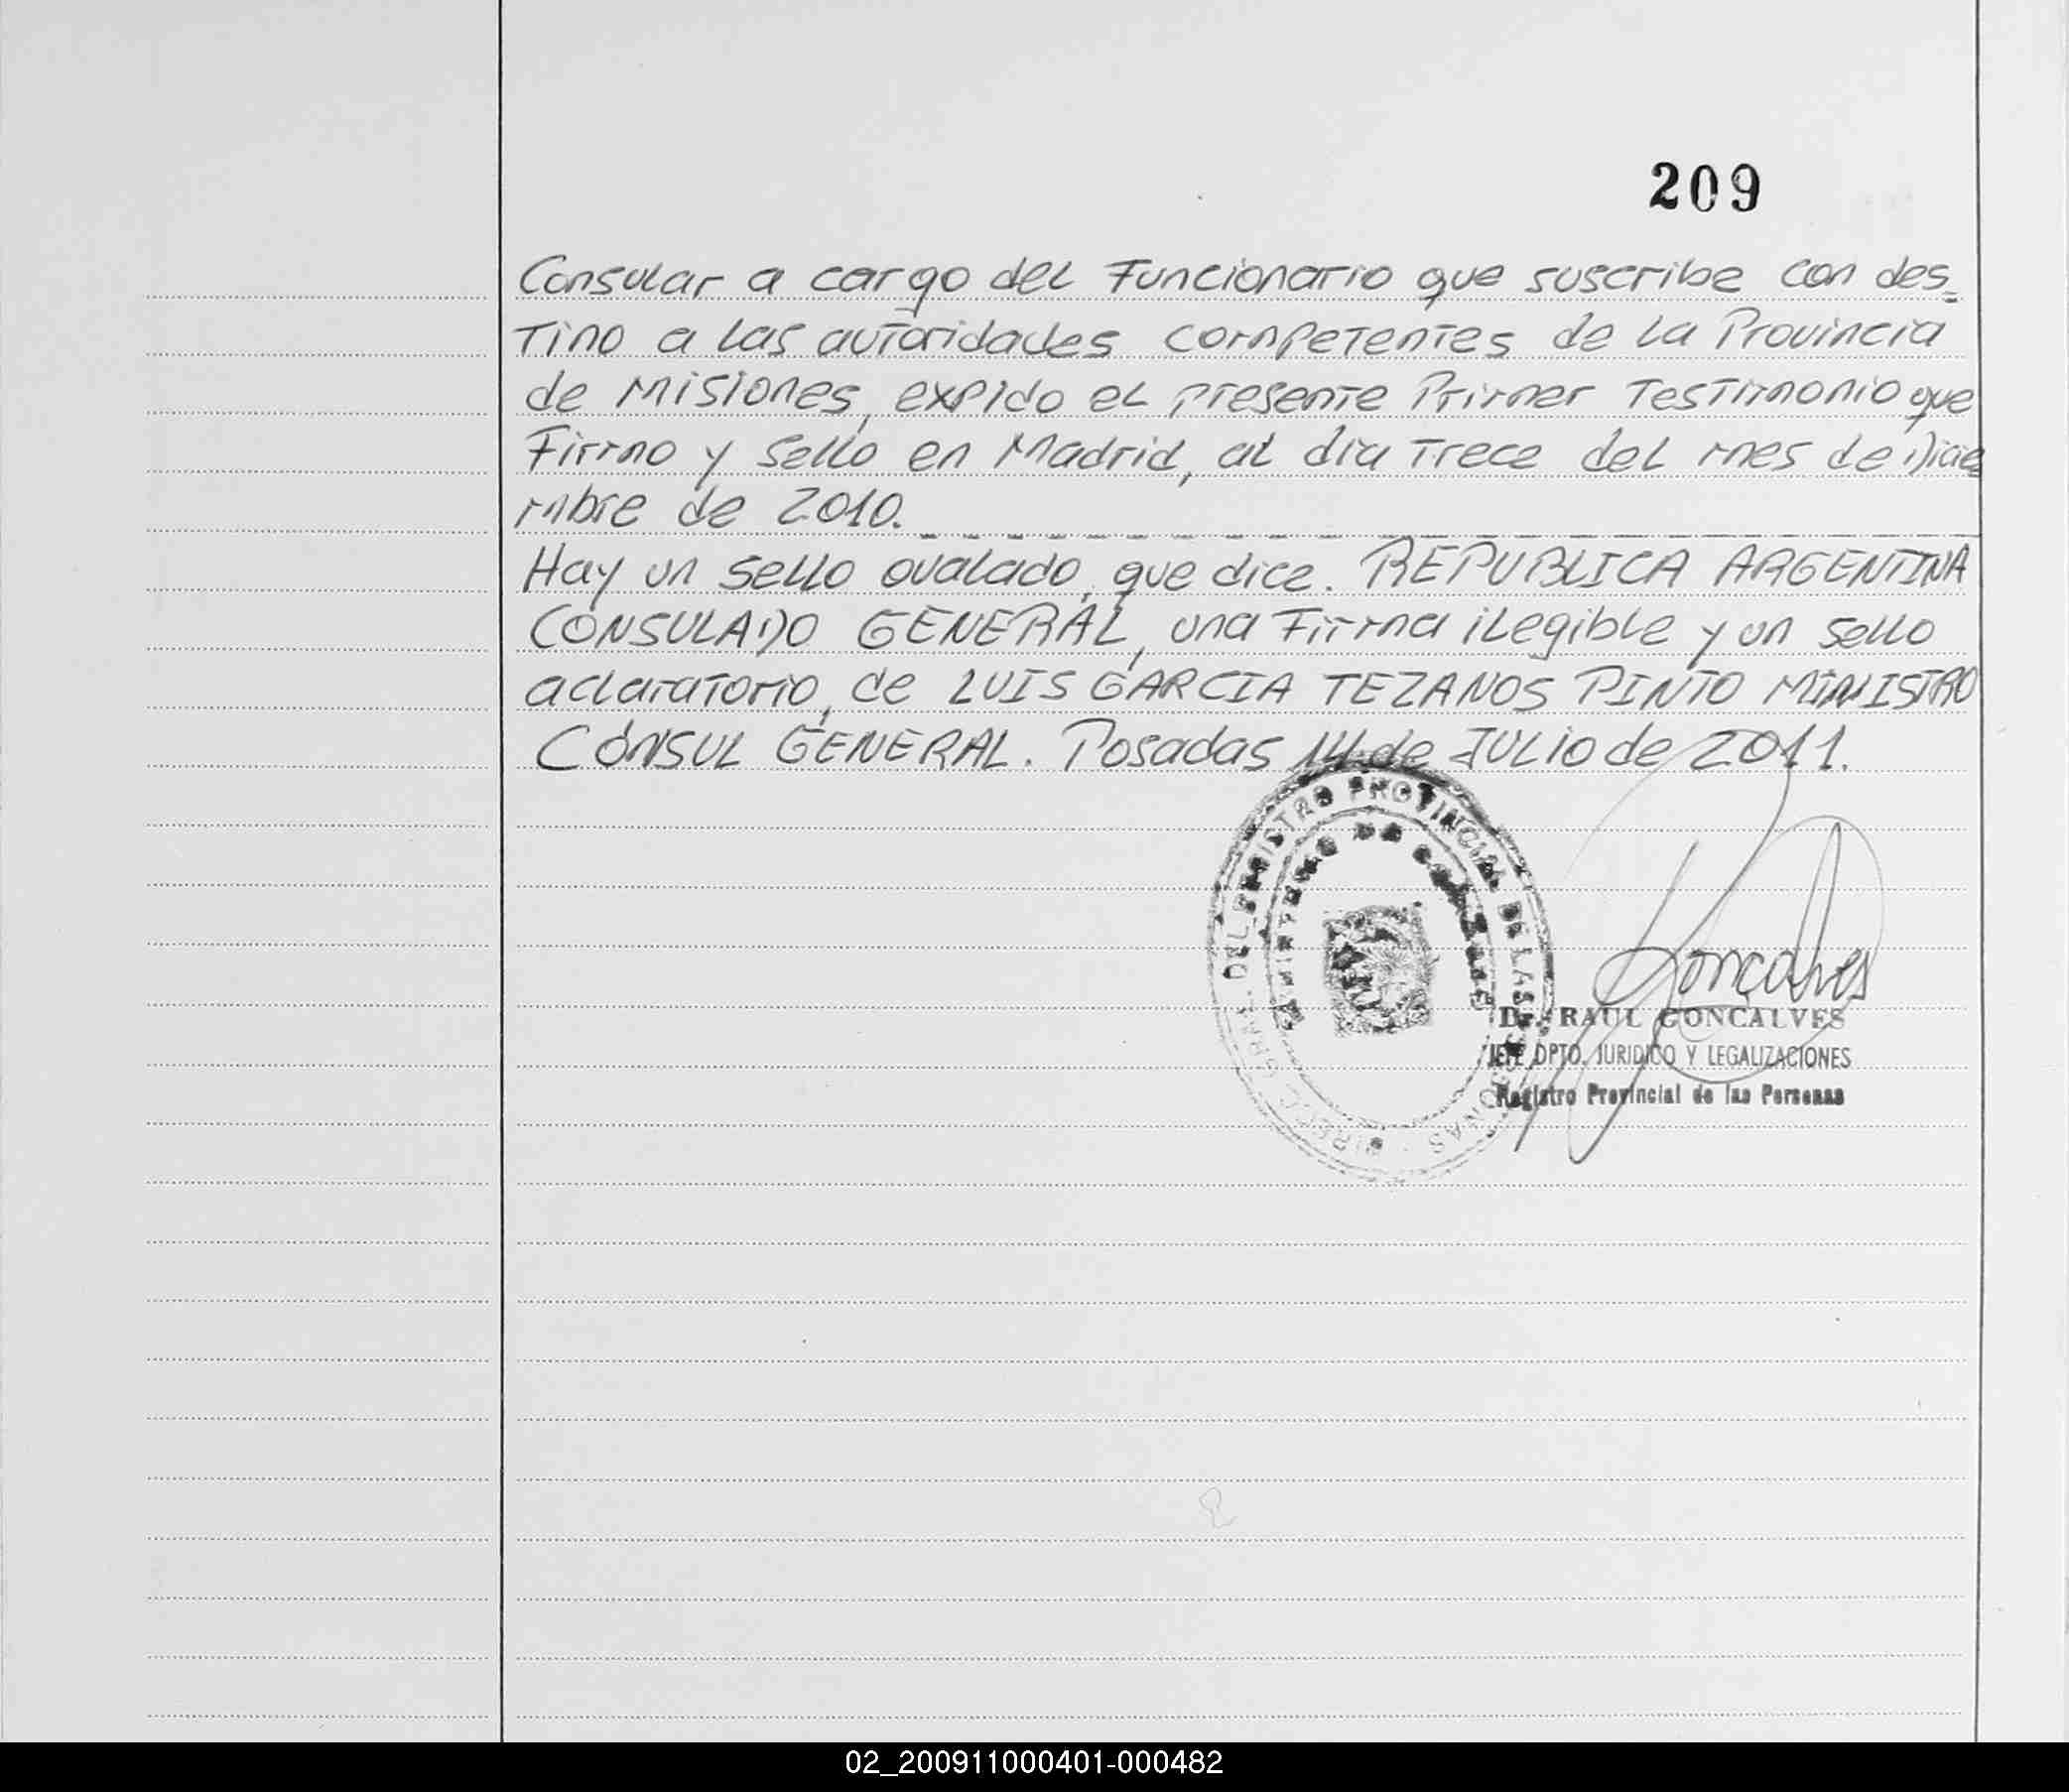 209
Consular a cargo del Funcionario que suscribe con des=
Tino a las autoridades competentes de la Provincia
de Misiones, expido el presente Primer Testimonio que
Firmo y sello en Madrid, al día Trece del mes de Dicie
mbre de 2010.
Hay un sello ovalado, que dice. REPUBLICA ARGENTINA
CONSULADO GENERAL, una Firma ilegible y un sello
aclaratorio, de LUIS GARCIA TEZANOS PINTO MINISTRO
CÓNSUL GENERAL. Posadas 14 de JULIO de 2011.
DIRECC. GRAL. DEL REGISTRO PROVINCIAL DE LAS PERSONAS
MINISTERIO DE GOBIERNO
Goncalves
Dr. RAUL GONCALVES
JEFE DPTO. JURIDICO Y LEGALIZACIONES
Registro Provincial de las Personas
02_200911000401-000482